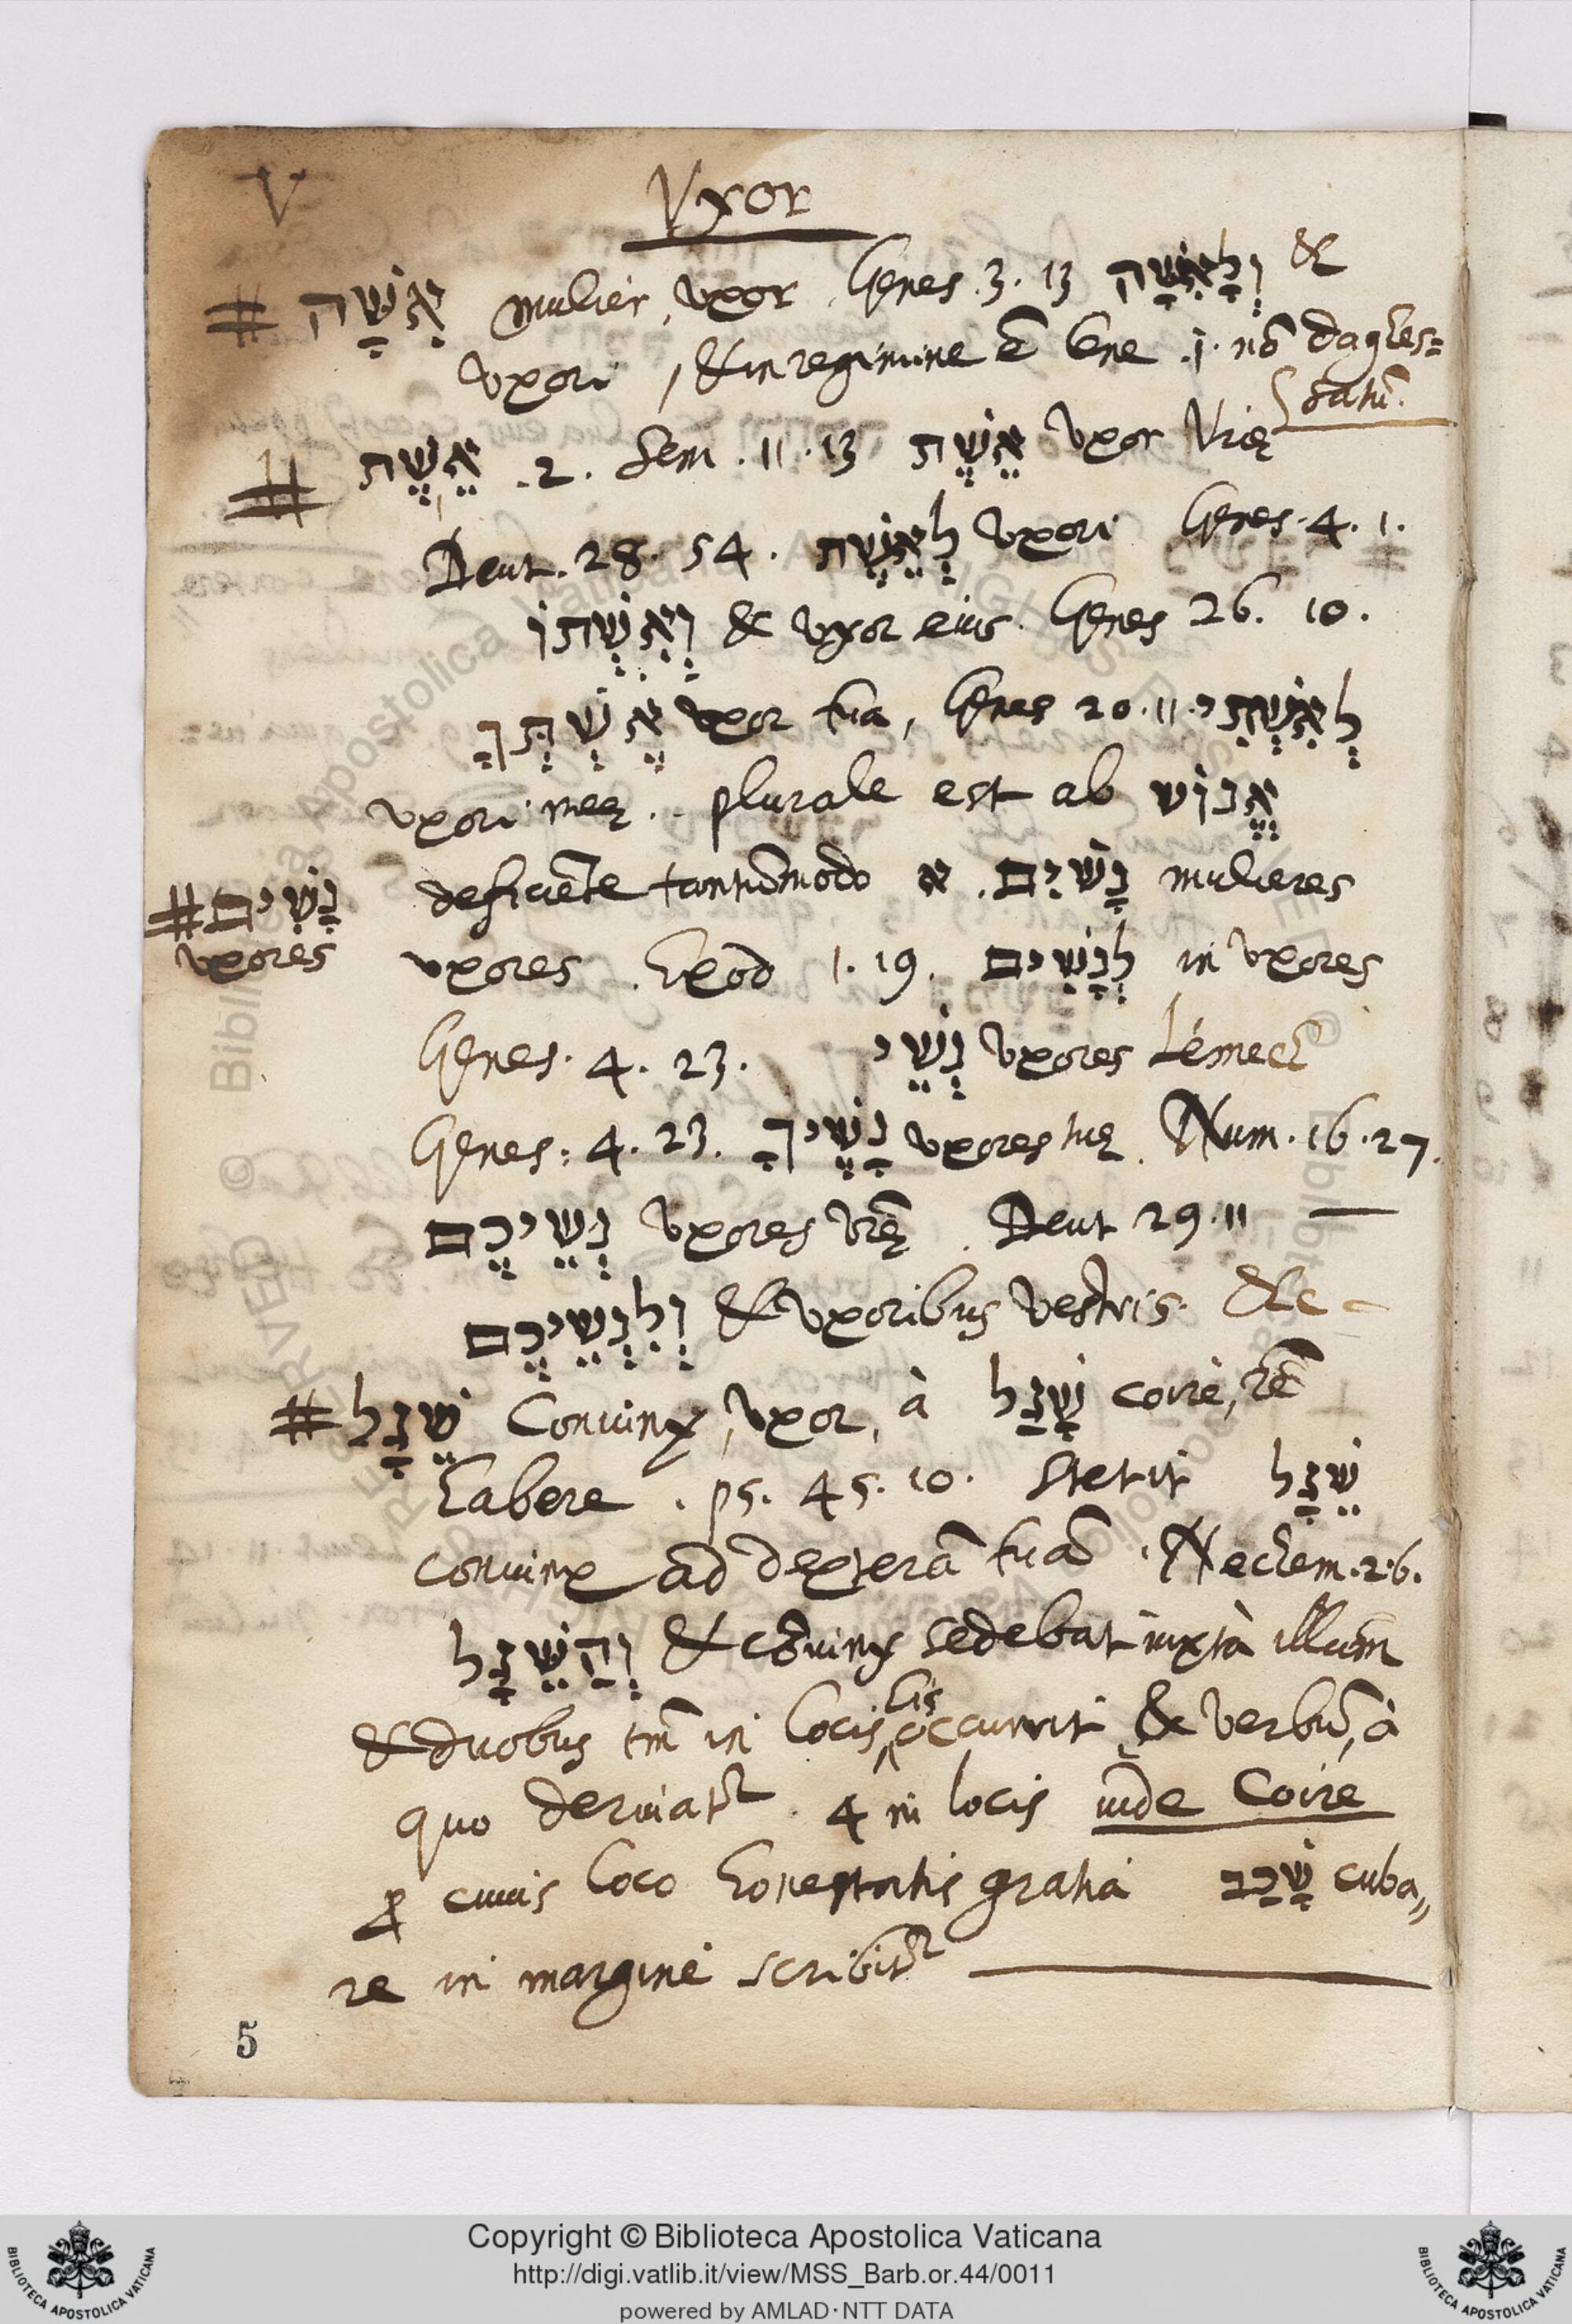 V
Vxor
# אִשָּׁה mulier, vxor. Genes. 3. 13 וְלָאִשָּׁה &
vxori, & in regimine ē lene .i. nō daghes=
satū.
# אֵשֶׁת .2. Sem. 11. 13 אֵשֶׁת vxor Vrię
Deut. 28. 54. לְאֵשֶׁת vxori Genes. 4. 1.
וְאִשְׁתּוֹ & vxor eius. Genes 26. 10.
אֶשְׁתְּךָ vxor tua, Genes 20. 11. לְאִשְׁתִּי
vxori meę. . plurale est ab אֱנוֹשׁ
deficiēte tantūmodo א. נָשִׁים mulieres
# נָשִׁים
vxores
vxores. Exod 1. 19. לְנָשִׁים in vxores
Genes. 4. 23. נְשֵׁי vxores Lémech
Genes: 4. 23. נָשֶׁיךָ vxores tuę. Num. 16. 27.
נְשֵׁיכֶם vxores vrę̄. Deut 29. 11
וְלִנְשֵׁיכֶם & vxoribus vestris. &c
# שֵׁגָל Coniunx, vxor, à שָׁגַל coire, rē
habere. ps. 45. 10. stetit שֵׁגָל
coniunx ad dexterā tuā. Nechem. 2. 6.
וְהַשֵּׁגָל & cōiunx sedebat iuxtà illum
& duobus tm̄ in locis his occurrit & verbū, à
quo deriuatr 4 in locis vide Coire
ꝓ cuius loco honestatis gratia שָׁכַב cuba=
re in margine scribitr
5
Copyright © Biblioteca Apostolica Vaticana
http://digi.vatlib.it/view/MSS_Barb.or.44/0011
powered by AMLAD·NTT DATA
BIBLIOTECA APOSTOLICA VATICANA
BIBLIOTECA APOSTOLICA VATICANA